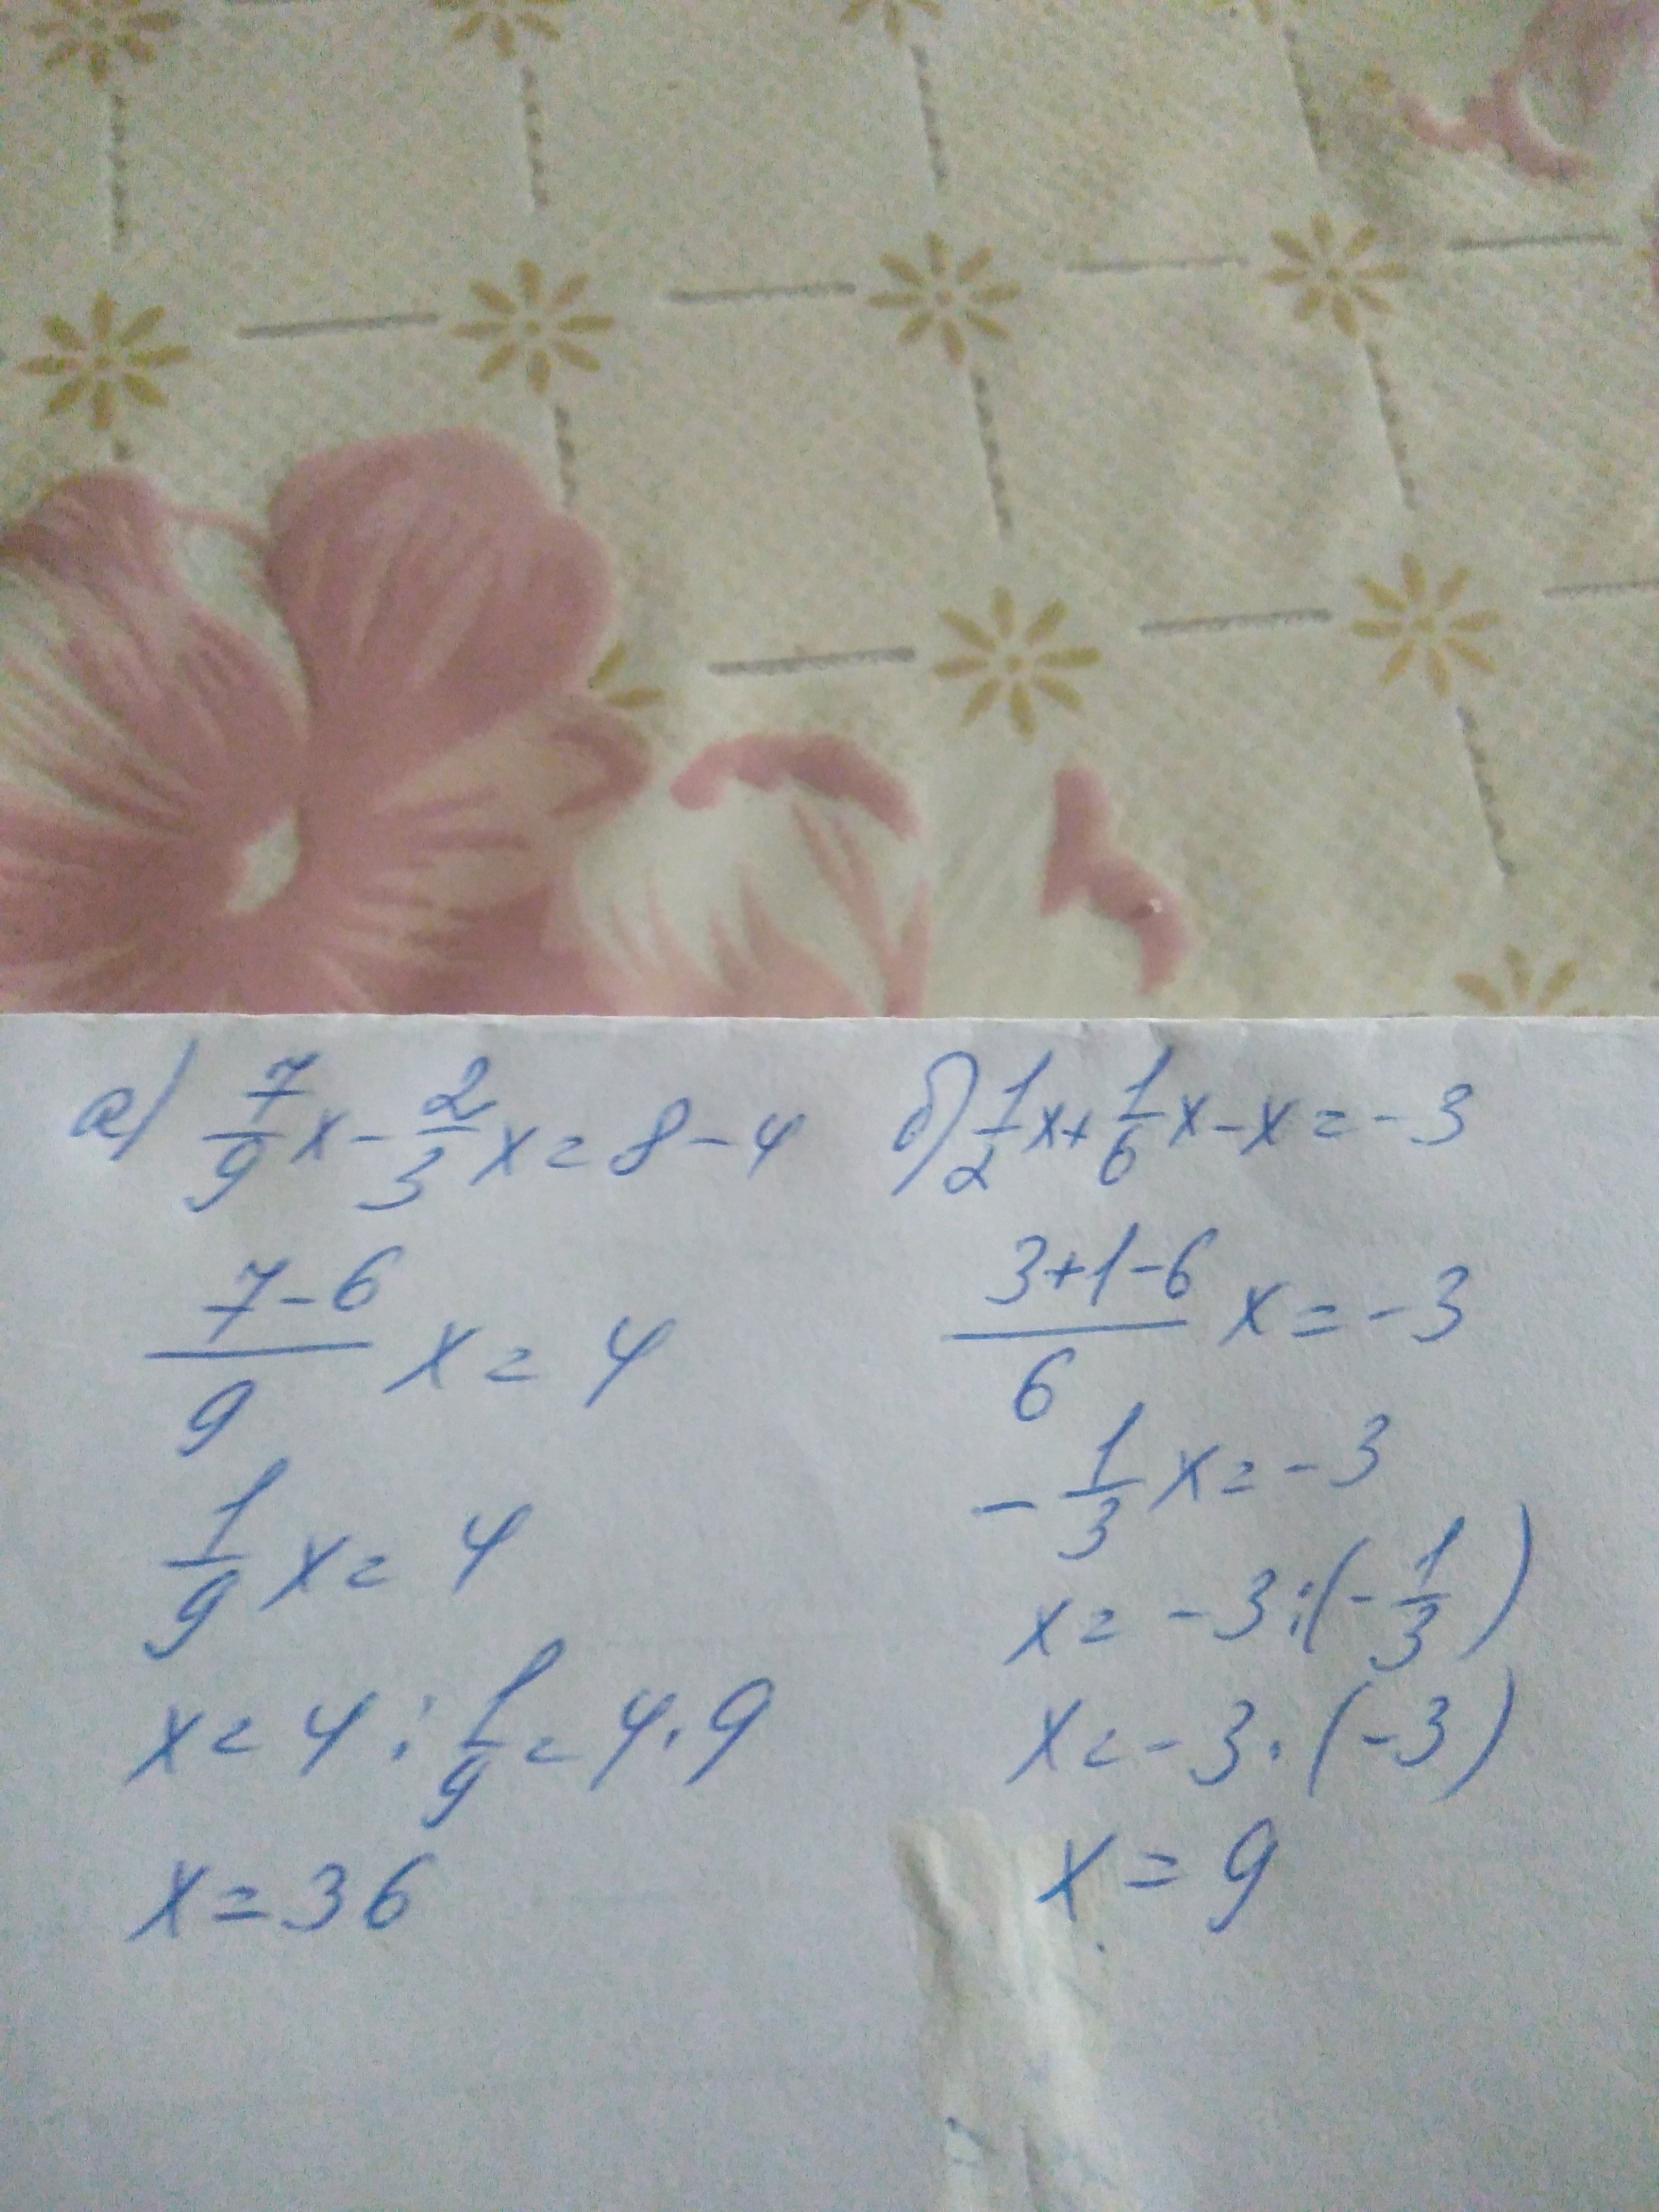 а) 7/9 x - 2/3 x = 8 - 4
7-6/9 x = 4
1/9 x = 4
x = 4 : 1/9 = 4 · 9
x = 36
б) 1/2 x + 1/6 x - x = - 3
3+1-6/6 x = - 3
- 1/3 x = - 3
x = - 3 : (- 1/3)
x = - 3 · (- 3)
x = 9